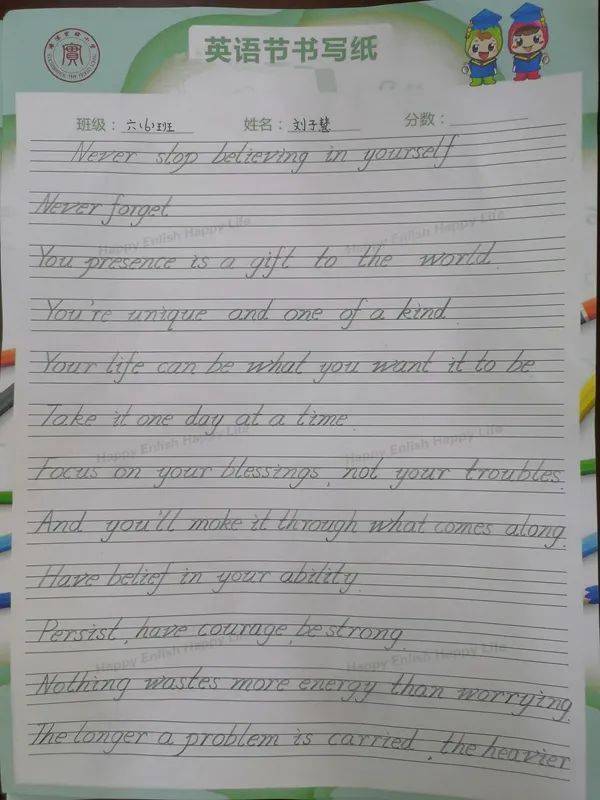 英语节书写纸
班级：六（6）班 姓名：刘子慧 分数：
Never stop believing in yourself
Never forget
Happy Enlish Happy Life Happy Enlish Happy Life
You presence is a gift to the world.
You're unique and one of a kind.
Your life can be what you want it to be
Take it one day at a time.
Happy Enlish Happy Life Happy Enlish Happy Life
Focus on your blessings, not your troubles.
And you'll make it through what comes along.
Have belief in your ability.
Persist, have courage, be strong.
Happy Enlish Happy Life Happy Enlish Happy Life
Nothing wastes more energy than worrying.
The longer a problem is carried, the heavier